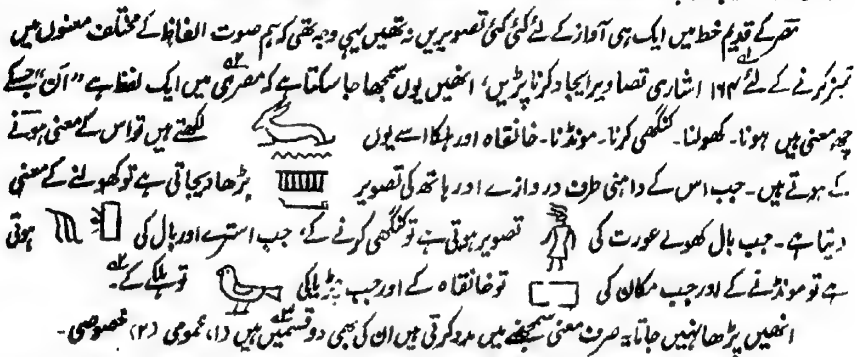 مصر کے قدیم خط میں ایک ہی آواز کے لئے کئی کئی تصویریں نہ تھیں یہی وجہ تھی کہ ہم صوت الفاظ کے مختلف معنوں میں
تمیز کرنے کے لئے ۱۶۴ اشاری تصاویر ایجاد کرنا پڑیں، انھیں یوں سمجھا جا سکتا ہے کہ مصری میں ایک لفظ ہے "اَن" جسکے
چھ معنی ہیں ہونا۔ کھولنا۔ کنگھی کرنا۔ مونڈنا۔ خانقاہ اور ہلکا اسے یوں لکھتے ہیں تو اس کے معنی ہونے
کے ہوتے ہیں۔ جب اس کے داہنی طرف دروازے اور ہاتھ کی تصویر بڑھا دیجاتی ہے تو کھولنے کے معنی
دیتا ہے۔ جب بال کھولے عورت کی تصویر ہوتی ہے تو کنگھی کرنے کے، جب استرے اور بال کی ہوتی
ہے تو مونڈنے کے اور جب مکان کی تو خانقاہ کے اور جب چڑیا کی تو ہلکے کے۔
انھیں پڑھا نہیں جاتا یہ صرف معنی سمجھنے میں مدد کرتی ہیں ان کی بھی دو قسمیں ہیں (۱) عمومی (۲) خصوصی۔